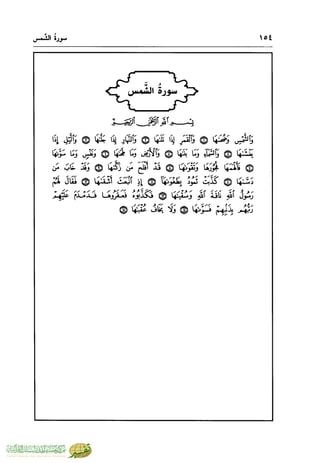 ١٥٤
سورة الشمس
سورة الشمس
بسم الله الرحمن الرحيم
والشمس وضحها والقمر إذا تلها والنهار إذا جلها واليل إذا
يغشها والسماء وما بنها والأرض وما طحها ونفس وما سوها
فألهمها فجورها وتقوها قد أفلح من زكها وقد خاب من
دسها كذبت ثمود بطغوها إذ انبعث أشقها فقال لهم
رسول الله ناقة الله وسقيها فكذبوه فعقروها فدمدم عليهم
ربهم بذنبهم فسوها ولا يخاف عقبها